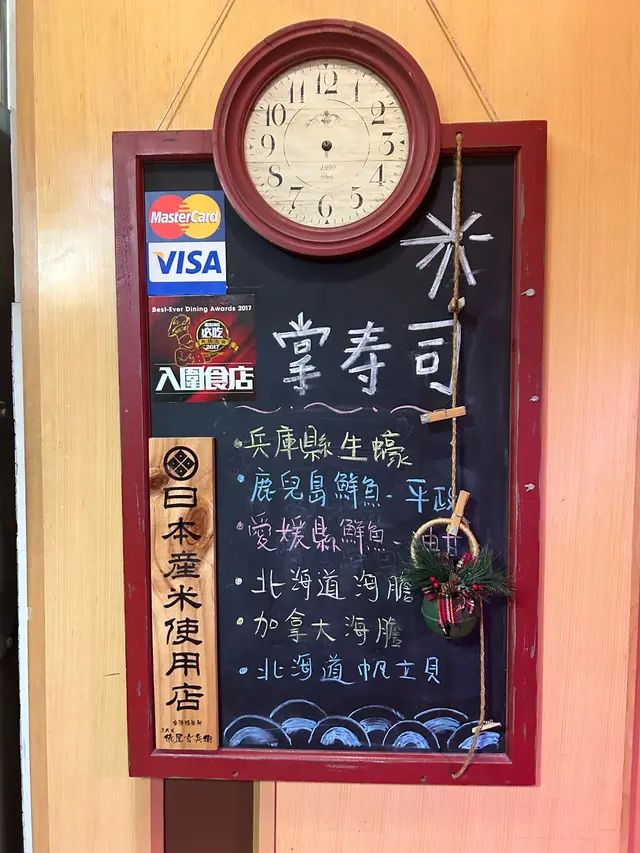 12 1 2 3 4 5 6 7 8 9 10 11
1990
MasterCard
VISA
Best-Ever Dining Awards 2017
必吃
2017
入圍食店
掌寿司
·兵庫縣生蠔
·鹿兒島鮮魚-平政
·愛媛縣鮮魚-
·北海道海膽
·加拿大海膽
·北海道帆立貝
日本産米使用店